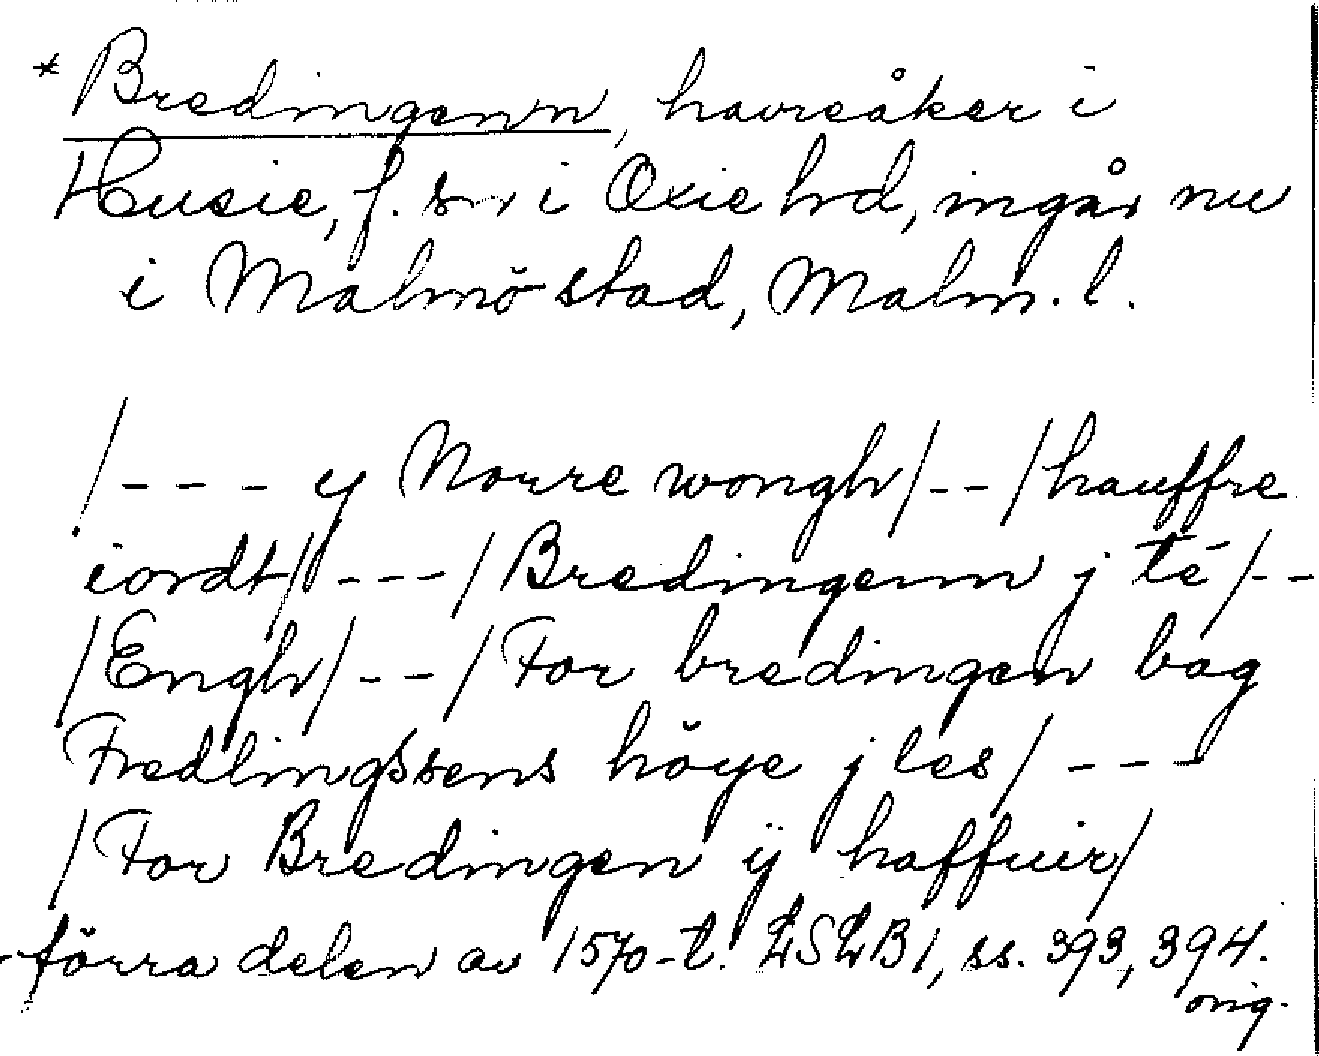 * Bredingenn, havreåker i
Husie, f. sn i Oxie hd, ingår nu
i Malmö stad, Malm. l.
/--- y Norre wongh/--/hauffre
iordt/---/Bredingenn j te/--
/Engh/--/For bredingen bag
Fredlingssens höye j les/---
/For Bredingen ij haffuir/
förra delen av 1570-t. LSLB1, ss. 393, 394.
orig.